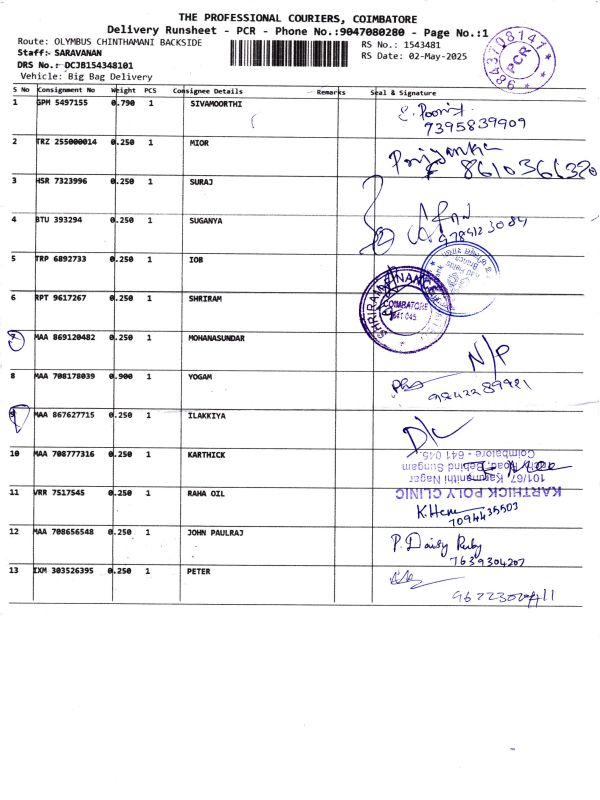 THE PROFESSIONAL COURIERS, COIMBATORE
Delivery Runsheet - PCR - Phone No.:9047080280 - Page No.:1
Route: OLYMBUS CHINTHAMANI BACKSIDE
RS No.: 1543481
Staff:- SARAVANAN
RS Date: 02-May-2025
DRS No.:- DCJB154348101
Vehicle: Big Bag Delivery
9843708141
PCR
S No Consignment No Weight PCS Consignee Details Remarks Seal & Signature
1 GPM 5497155 0.790 1 SIVAMOORTHI
7395839909
2 TRZ 255000014 0.250 1 MIOR
Priyanka
3 HSR 7323996 0.250 1 SURAJ
4 BTU 393294 0.250 1 SUGANYA
5 TRP 6892733 0.250 1 IOB
6 RPT 9617267 0.250 1 SHRIRAM
SHRIRAM FINANCE
COIMBATORE
641 045
7 MAA 869120482 0.250 1 MOHANASUNDAR
N/P
8 MAA 708178039 0.900 1 YOGAM
9842289921
9 MAA 867627715 0.250 1 ILAKKIYA
D/L
10 MAA 708777316 0.250 1 KARTHICK
KARTHICK POLY CLINIC
101/67, Karunanithi Nagar
Road, Behind Sungam
Coimbalore - 641 045.
11 VRR 7517545 0.250 1 RAHA OIL
K.Hem
7094435503
12 MAA 708656548 0.250 1 JOHN PAULRAJ
P. Daisy Ruby
7639304207
13 IXM 303526395 0.250 1 PETER